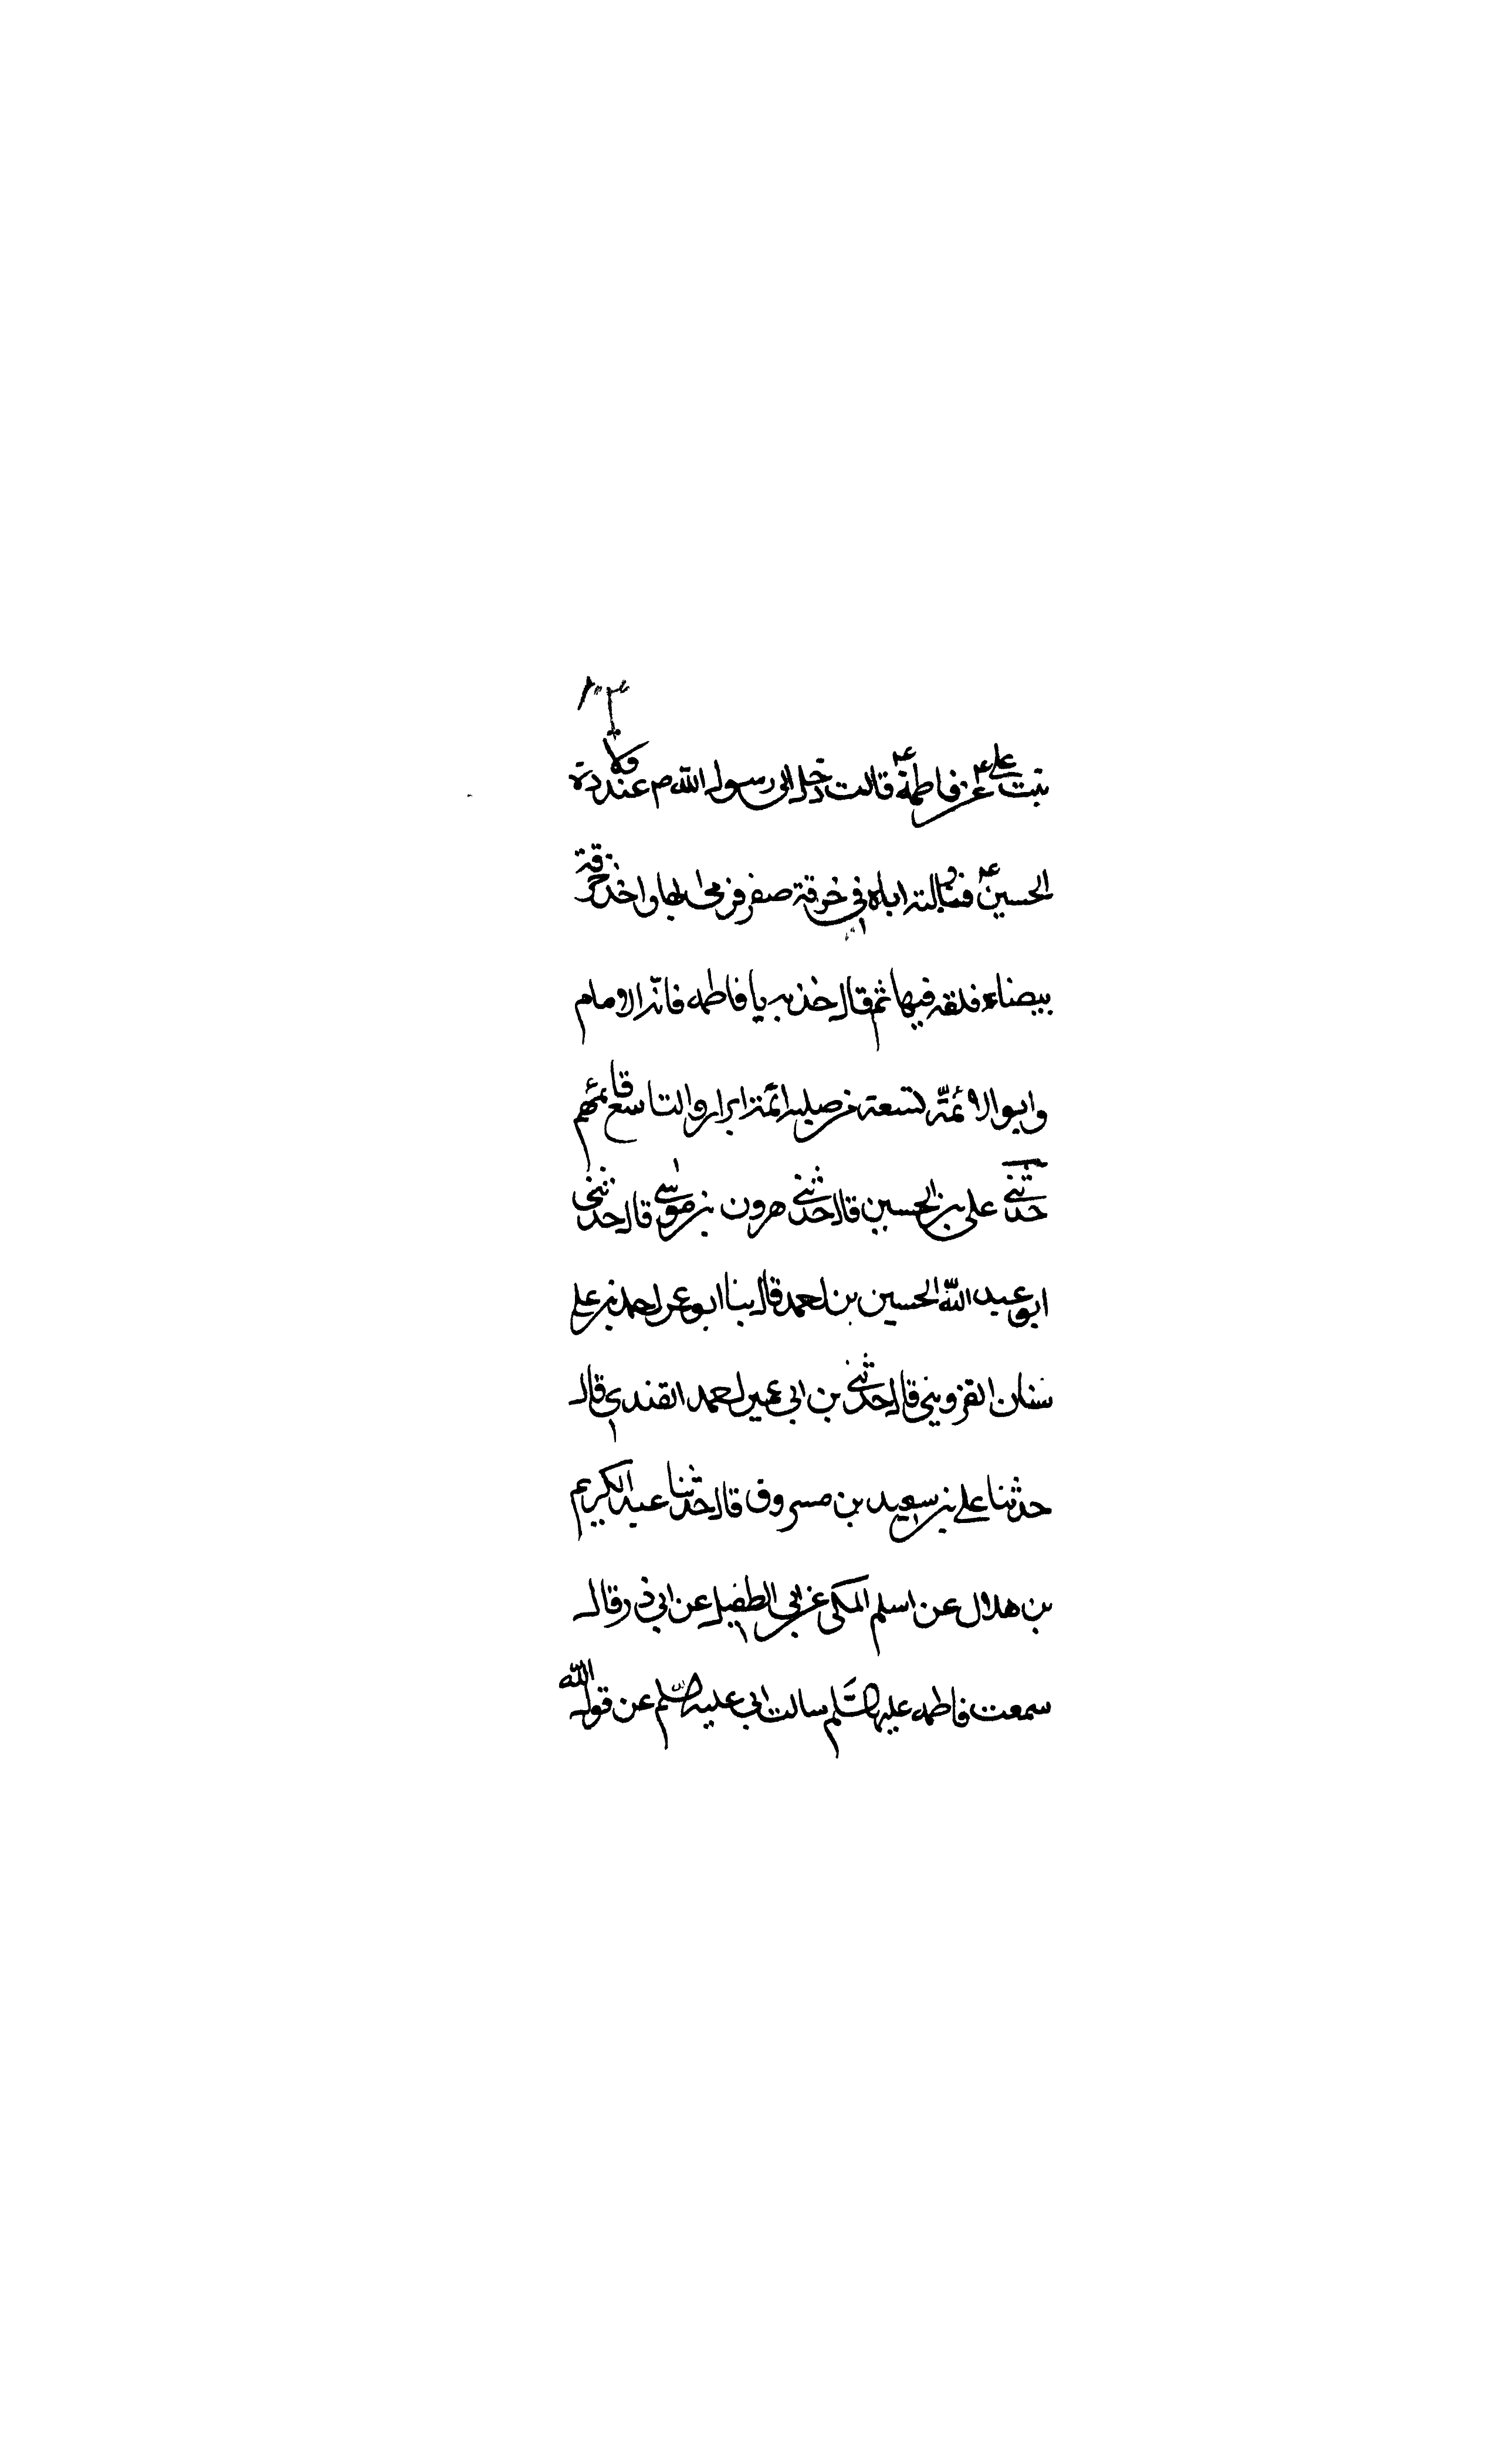 ٢٠٣
بنت علي ع عن فاطمة ع قالت دخل الى رسول الله ص عند ولادة
الحسين ع فناولته اياه في خرقة صفر فرمى بها واخذ خرقة
بيضاء فلفه فيها ثم قال خذيه يا فاطمه فانه الامام
وابو الائمة تسعة من صلبه ائمة ابرار والتاسع قائمهم
حدثني علي بن الحسين قال حدثني هرون بن موسى قال حدثني
ابو عبد الله الحسين بن احمد قال بنا ابو عمر احمد بن علي
القزويني قال حدثني بن ابي عمير احمد القندي قال
حدثنا علي بن سعيد بن مسروق قال حدثنا عبد الكريم
بن هلال عن اسلم المكي عن ابي الطفيل عن ابي ذر قال
سمعت فاطمه عليها السلم سالت ابي عليه السلم عن قول الله